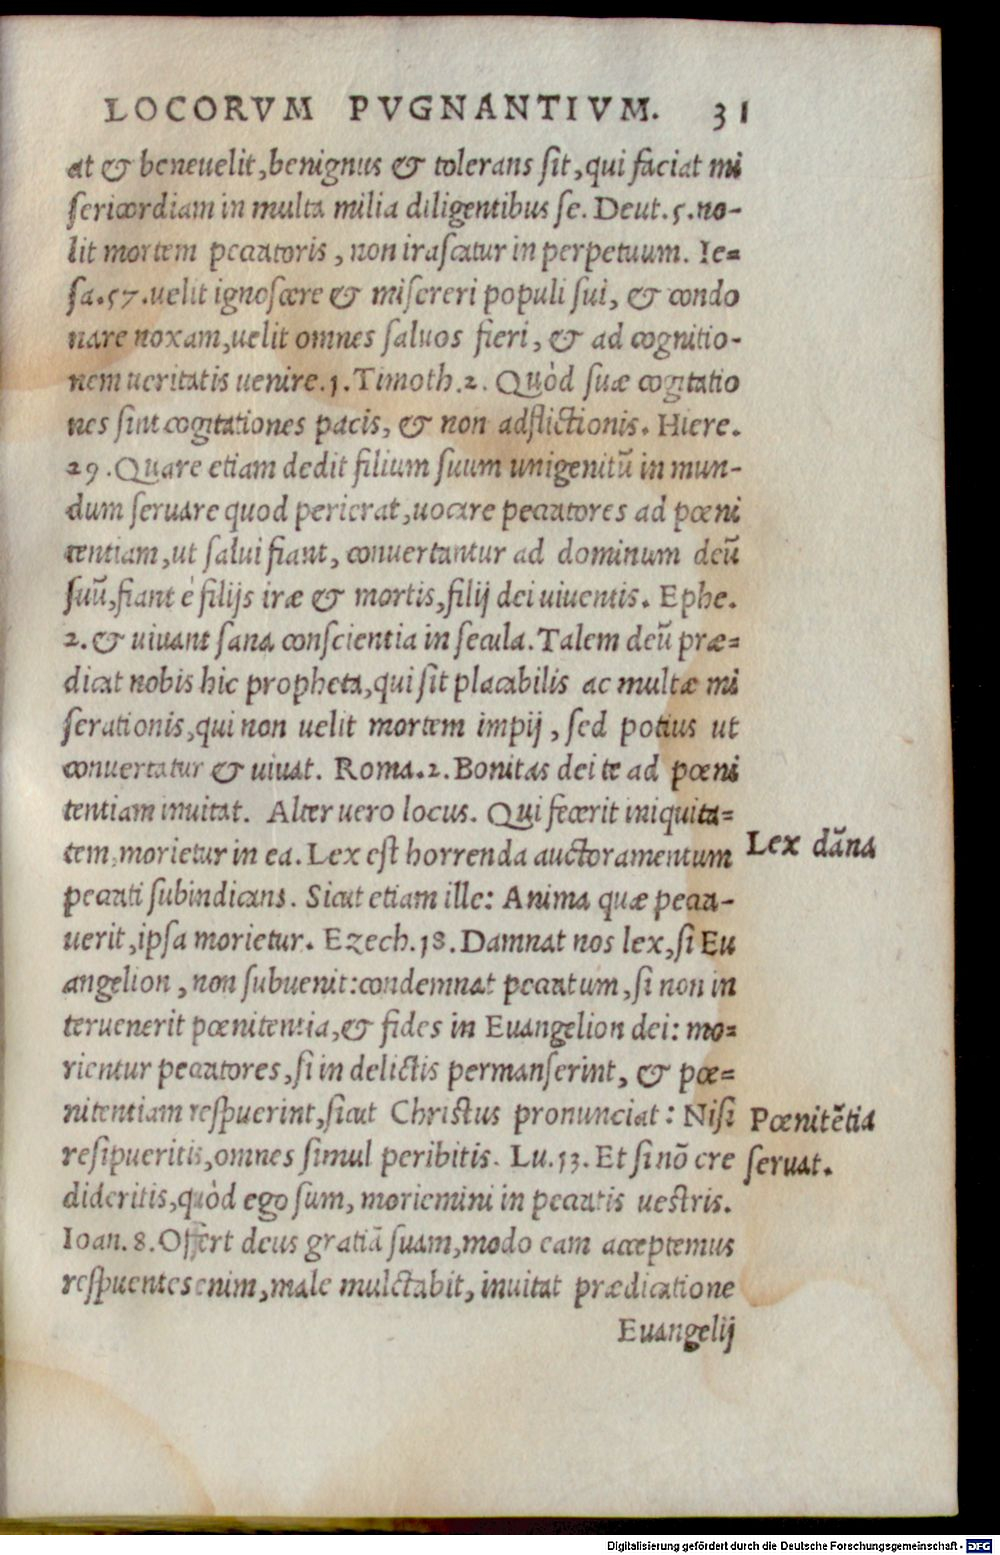 LOCORVM PVGNANTIVM. 31
at & beneuelit, benignus & tolerans sit, qui faciat mi
sericordiam in multa milia diligentibus se. Deut. 5. no-
lit mortem peccatoris, non irascatur in perpetuum. Ie=
sa. 57. uelit ignoscere & misereri populi sui, & condo
nare noxam, uelit omnes saluos fieri, & ad cognitio-
nem ueritatis uenire. 1. Timoth. 2. Quòd suæ cogitatio
nes sint cogitationes pacis, & non adflictionis. Hiere.
29. Quare etiam dedit filium suum unigenitū in mun-
dum seruare quod perierat, uocare peccatores ad pœni
tentiam, ut salui fiant, conuertantur ad dominum deū
suū, fiant è filijs iræ & mortis, filij dei uiuentis. Ephe.
2. & uiuant sana conscientia in secula. Talem deū præ=
dicat nobis hic propheta, qui sit placabilis ac multæ mi
serationis, qui non uelit mortem impij, sed potius ut
conuertatur & uiuat. Roma. 2. Bonitas dei te ad pœni
tentiam inuitat. Alter uero locus. Qui fecerit iniquita=
tem, morietur in ea. Lex est horrenda auctoramentum
peccati subindicans. Sicut etiam ille: Anima quæ pecca-
uerit, ipsa morietur. Ezech. 18. Damnat nos lex, si Eu
angelion, non subuenit: condemnat peccatum, si non in
teruenerit pœnitentia, & fides in Euangelion dei: mo=
rientur peccatores, si in delictis permanserint, & pœ=
nitentiam respuerint, sicut Christus pronunciat: Nisi
resipueritis, omnes simul peribitis. Lu. 13. Et si nō cre
dideritis, quòd ego sum, moriemini in peccatis uestris.
Ioan. 8. Offert deus gratiā suam, modo eam acceptemus
respuentes enim, male mulctabit, inuitat prædicatione
Euangelij
Lex dāna
Pœnitētia
seruat.
Digitalisierung gefördert durch die Deutsche Forschungsgemeinschaft - DFG